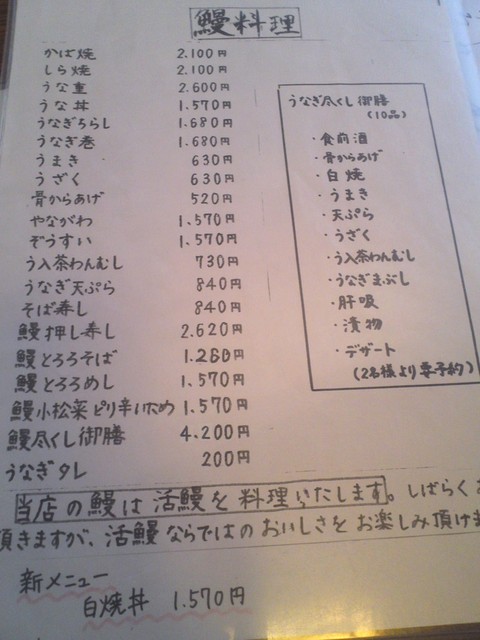 鰻料理
かば焼 2.100円
しら焼 2.100円
うな重 2.600円
うな丼 1.570円
うなぎちらし 1.680円
うなぎ巻 1.680円
うまき 630円
うざく 630円
骨からあげ 520円
やながわ 1.570円
ぞうすい 1.570円
う入茶わんむし 730円
うなぎ天ぷら 840円
そば寿し 840円
鰻押し寿し 2.620円
鰻とろろそば 1.260円
鰻とろろめし 1.570円
鰻小松菜ピリ辛いため 1.570円
鰻尽くし御膳 4.200円
うなぎタレ 200円
うなぎ尽くし御膳
(10品)
・食前酒
・骨からあげ
・白焼
・うまき
・天ぷら
・うざく
・う入茶わんむし
・うなぎまぶし
・肝吸
・漬物
・デザート
(2名様より要予約)
当店の鰻は活鰻を料理いたします。しばらくお
頂きますが、活鰻ならではのおいしさをお楽しみ頂けま
新メニュー
白焼丼 1.570円